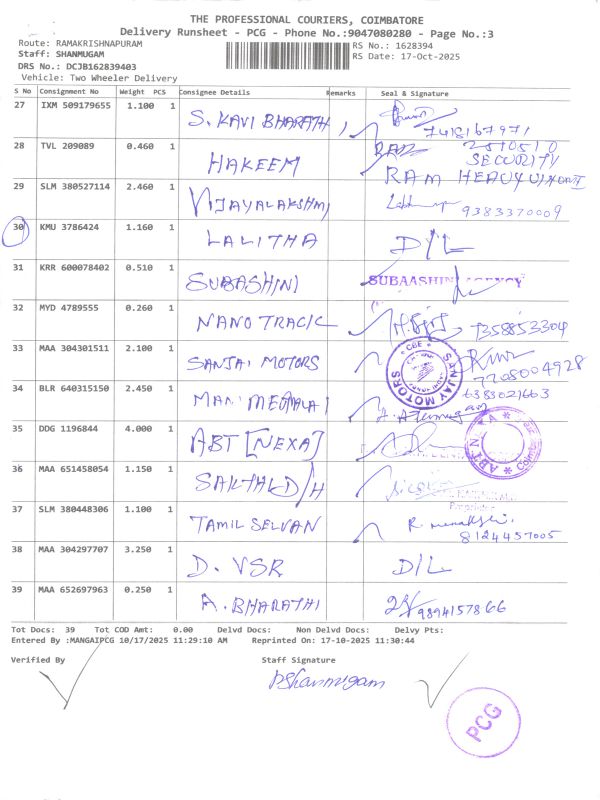 THE PROFESSIONAL COURIERS, COIMBATORE
Delivery Runsheet - PCG - Phone No.:9047080280 - Page No.:3
Route: RAMAKRISHNAPURAM
RS No.: 1628394
Staff: SHANMUGAM
RS Date: 17-Oct-2025
DRS No.: DCJB162839403
Vehicle: Two Wheeler Delivery
S No Consignment No Weight PCS Consignee Details Remarks Seal & Signature
27 IXM 509179655 1.100 1 S. KAVI BHARATH
28 TVL 209089 0.460 1 HAKEEM 2510510
SECURITY
RAM HEAVY
29 SLM 380527114 2.460 1 VIJAYALAKSHMI 9383370009
30 KMU 3786424 1.160 1 LALITHA D/L
31 KRR 600078402 0.510 1 SUBASHINI SUBAASHINI AGENCY
32 MYD 4789555 0.260 1 NANO TRACIC 7358853304
33 MAA 304301511 2.100 1 SANJAI MOTORS 7708004928
CBE
SANJAY MOTORS
34 BLR 640315150 2.450 1 MANI 6383021663
35 DDG 1196844 4.000 1 ABT [NEXA]
ABT N A
36 MAA 651458054 1.150 1 SAKTHI D/H
37 SLM 380448306 1.100 1 TAMIL SELVAN R. 8124457005
38 MAA 304297707 3.250 1 D. VSR D/L
39 MAA 652697963 0.250 1 A. BHARATHI 9894157866
Tot Docs: 39 Tot COD Amt: 0.00 Delvd Docs: Non Delvd Docs: Delvy Pts:
Entered By :MANGAIPCG 10/17/2025 11:29:10 AM Reprinted On: 17-10-2025 11:30:44
Verified By Staff Signature
PShanmugam
PCG